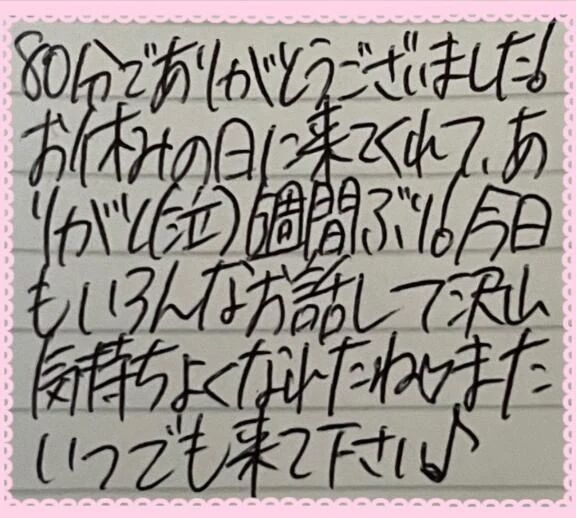 80分でありがとうございました!
お休みの日に来てくれて、あ
りがと(泣)6週間ぶり!今日
もいろんなお話して沢山
気持ちよくなれたねまた
いつでも来て下さい♪